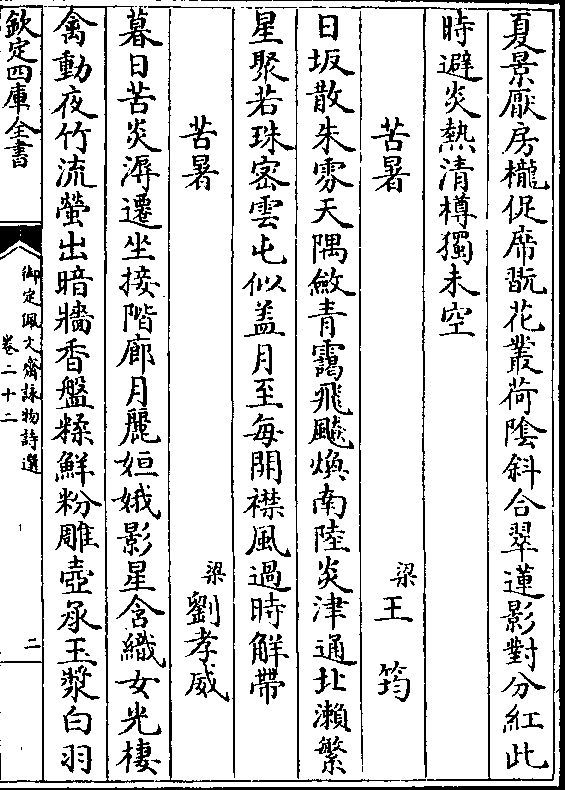 夏景厭房櫳促席翫花叢荷陰斜合翠蓮影對分紅此
時避炎熱清樽獨未空
苦暑　梁王筠
日坂散朱雰天隅斂青靄飛飈煥南陸炎津通北瀬繁
星聚若珠密雲屯似蓋月至每開襟風過時解帶
苦暑　梁劉孝威
暮日苦炎溽遷坐接階廊月麗姮娥影星含織女光棲
禽動夜竹流螢出暗牆香盤糅鮮粉雕壺承玉漿白羽
欽定四庫全書
御定佩文齋詠物詩選
卷二十二
二